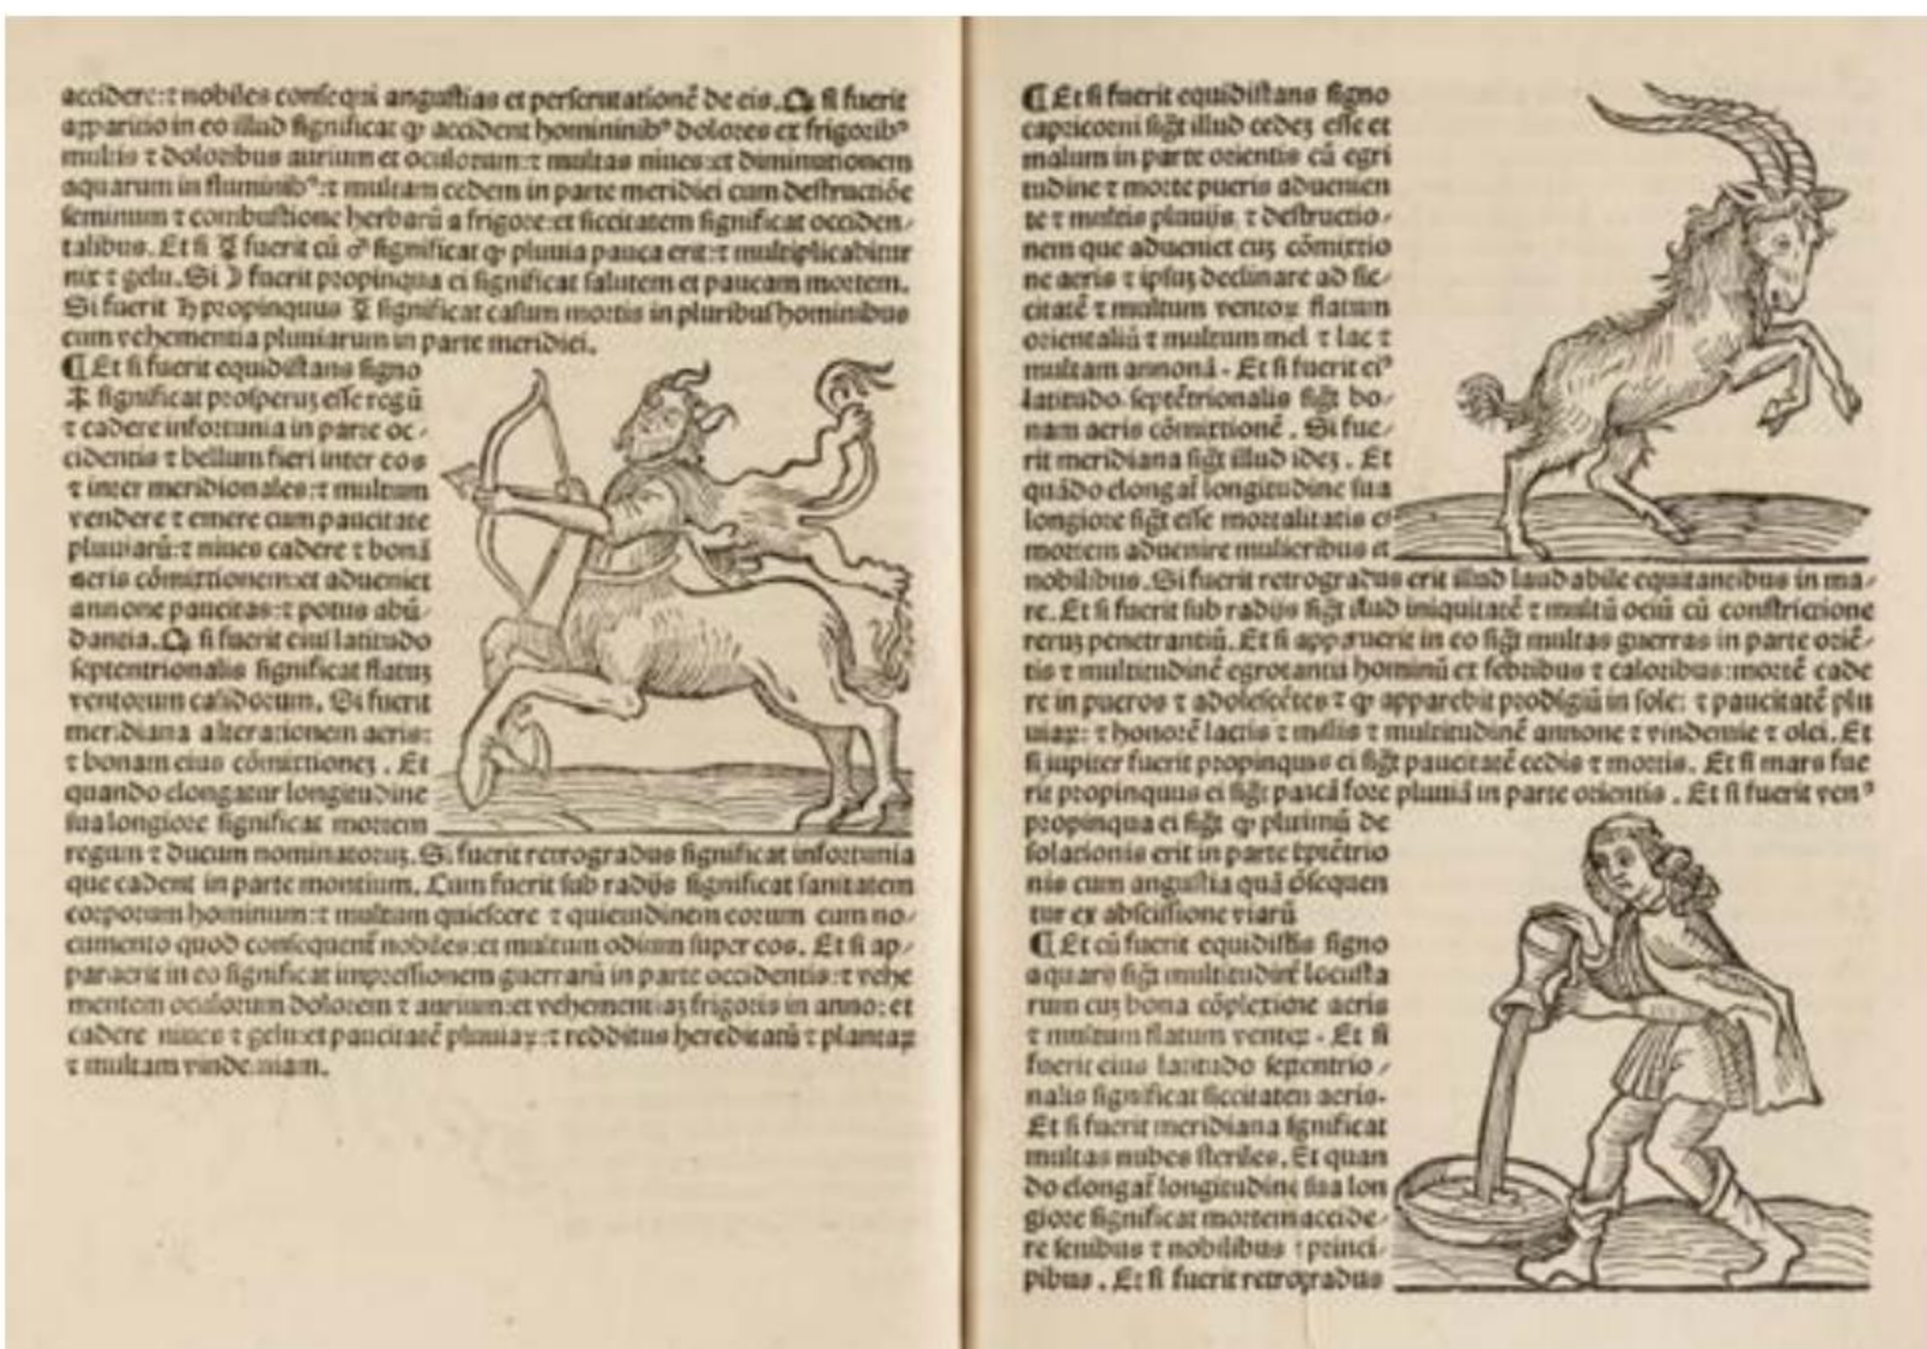 accidere:⁊ nobiles consequi angustias et perscrutationē de eis. Q̵ si fuerit
apparitio in eo illud significat qꝫ accident homininibꝰ dolores et frigoribꝰ
multis ⁊ doloribus aurium et oculorum:⁊ multas niues:et diminutionem
aquarum in fluminibꝰ:⁊ multam cedem in parte meridiei cum destructiōe
seminum ⁊ combustione herbarū a frigore:et siccitatem significat occiden⸗
talibus. Et si ☿ fuerit cū ♂ significat qꝫ pluuia pauca erit:⁊ multiplicabitur
nix ⁊ gelu. Si ☽ fuerit propinqua ei significat salutem et paucam mortem.
Si fuerit ♄ propinquus ☿ significat casum mortis in pluribus hominibus
cum vehementia pluuiarum in parte meridiei.
¶ Et si fuerit equidistans signo
♐ significat prosperuꝫ esse regū
⁊ cadere infortunia in parte oc⸗
cidentis ⁊ bellum fieri inter eos
⁊ inter meridionales:⁊ multum
vendere ⁊ emere cum paucitate
pluuiarū:⁊ niues cadere ⁊ bonā
aeris cōmixtionem:et adueniet
annone paucitas:⁊ potus abū⸗
dantia. Q̵ si fuerit eius latitudo
septentrionalis significat flatuꝫ
ventorum calidorum. Si fuerit
meridiana alterationem aeris:
⁊ bonam eius cōmixtioneꝫ. Et
quando elongatur longitudine
sua longiore significat mortem
regum ⁊ ducum nominatoruꝫ. Si fuerit retrogradus significat infortunia
que cadent in parte montium. Cum fuerit sub radijs significat sanitatem
corporum hominum:⁊ multum quiescere ⁊ quietudinem eorum cum no⸗
cumento quod consequent̄ nobiles:et multum odium super eos. Et si ap⸗
paruerit in eo significat impressionem guerrarū in parte occidentis:⁊ vehe
mentem oculorum dolorem ⁊ aurium:et vehementiaꝫ frigoris in anno: et
cadere niues ⁊ gelu:et paucitatē pluuiaꝝ:⁊ redditus hereditatū ⁊ plantaꝝ
⁊ multam vindemiam.
¶ Et si fuerit equidistans signo
capricorni sig̃t illud cedeꝫ esse et
malum in parte orientis cū egri
tudine ⁊ morte pueris aduenien
te ⁊ multis pluuijs, ⁊ destructio⸗
nem que adueniet cuꝫ cōmixtio
ne aeris ⁊ ipsuꝫ declinare ad sic⸗
citatē ⁊ multum ventoꝝ flatum
orientaliū ⁊ multum mel ⁊ lac ⁊
multam annonā. Et si fuerit eiꝰ
latitudo septētrionalis sig̃t bo⸗
nam aeris cōmixtionē. Si fue⸗
rit meridiana sig̃t illud ideꝫ. Et
quādo elongat̄ longitudine sua
longiore sig̃t esse mortalitatis et
mortem aduenire mulieribus et
nobilibus. Si fuerit retrogradus erit illud laudabile equitantibus in ma⸗
re. Et si fuerit sub radijs sig̃t illud iniquitatē ⁊ multū ociū cū constrictione
reruꝫ penetrantiū. Et si apparuerit in eo sig̃t multas guerras in parte oriē⸗
tis ⁊ multitudinē egrotantiū hominū et febribus ⁊ caloribus:mortē cade
re in pueros ⁊ adolescētes ⁊ qꝫ apparebit prodigiū in sole: ⁊ paucitatē plu
uiaꝝ: ⁊ honorē lactis ⁊ mellis ⁊ multitudinē annone ⁊ vindemie ⁊ olei. Et
si iupiter fuerit propinquus ei sig̃t paucitatē cedis ⁊ mortis. Et si mars fue
rit propinquus ei sig̃t paucā fore pluuiā in parte orientis. Et si fuerit venꝰ
propinqua ei sig̃t qꝫ plurimū de
solationis erit in parte sptētrio
nis cum angustia quā ōsequen
tur ex abscissione viarū
¶ Et cū fuerit equidistās signo
aquarij sig̃t multitudinē locusta
rum cuꝫ bona cōplexione aeris
⁊ multum flatum ventoꝝ. Et si
fuerit eius latitudo septentrio⸗
nalis significat siccitatem aeris.
Et si fuerit meridiana significat
multas nubes steriles. Et quan
do elongat̄ longitudine sua lon
giore significat mortem accide⸗
re senibus ⁊ nobilibus ⁊ princi⸗
pibus. Et si fuerit retrogradus